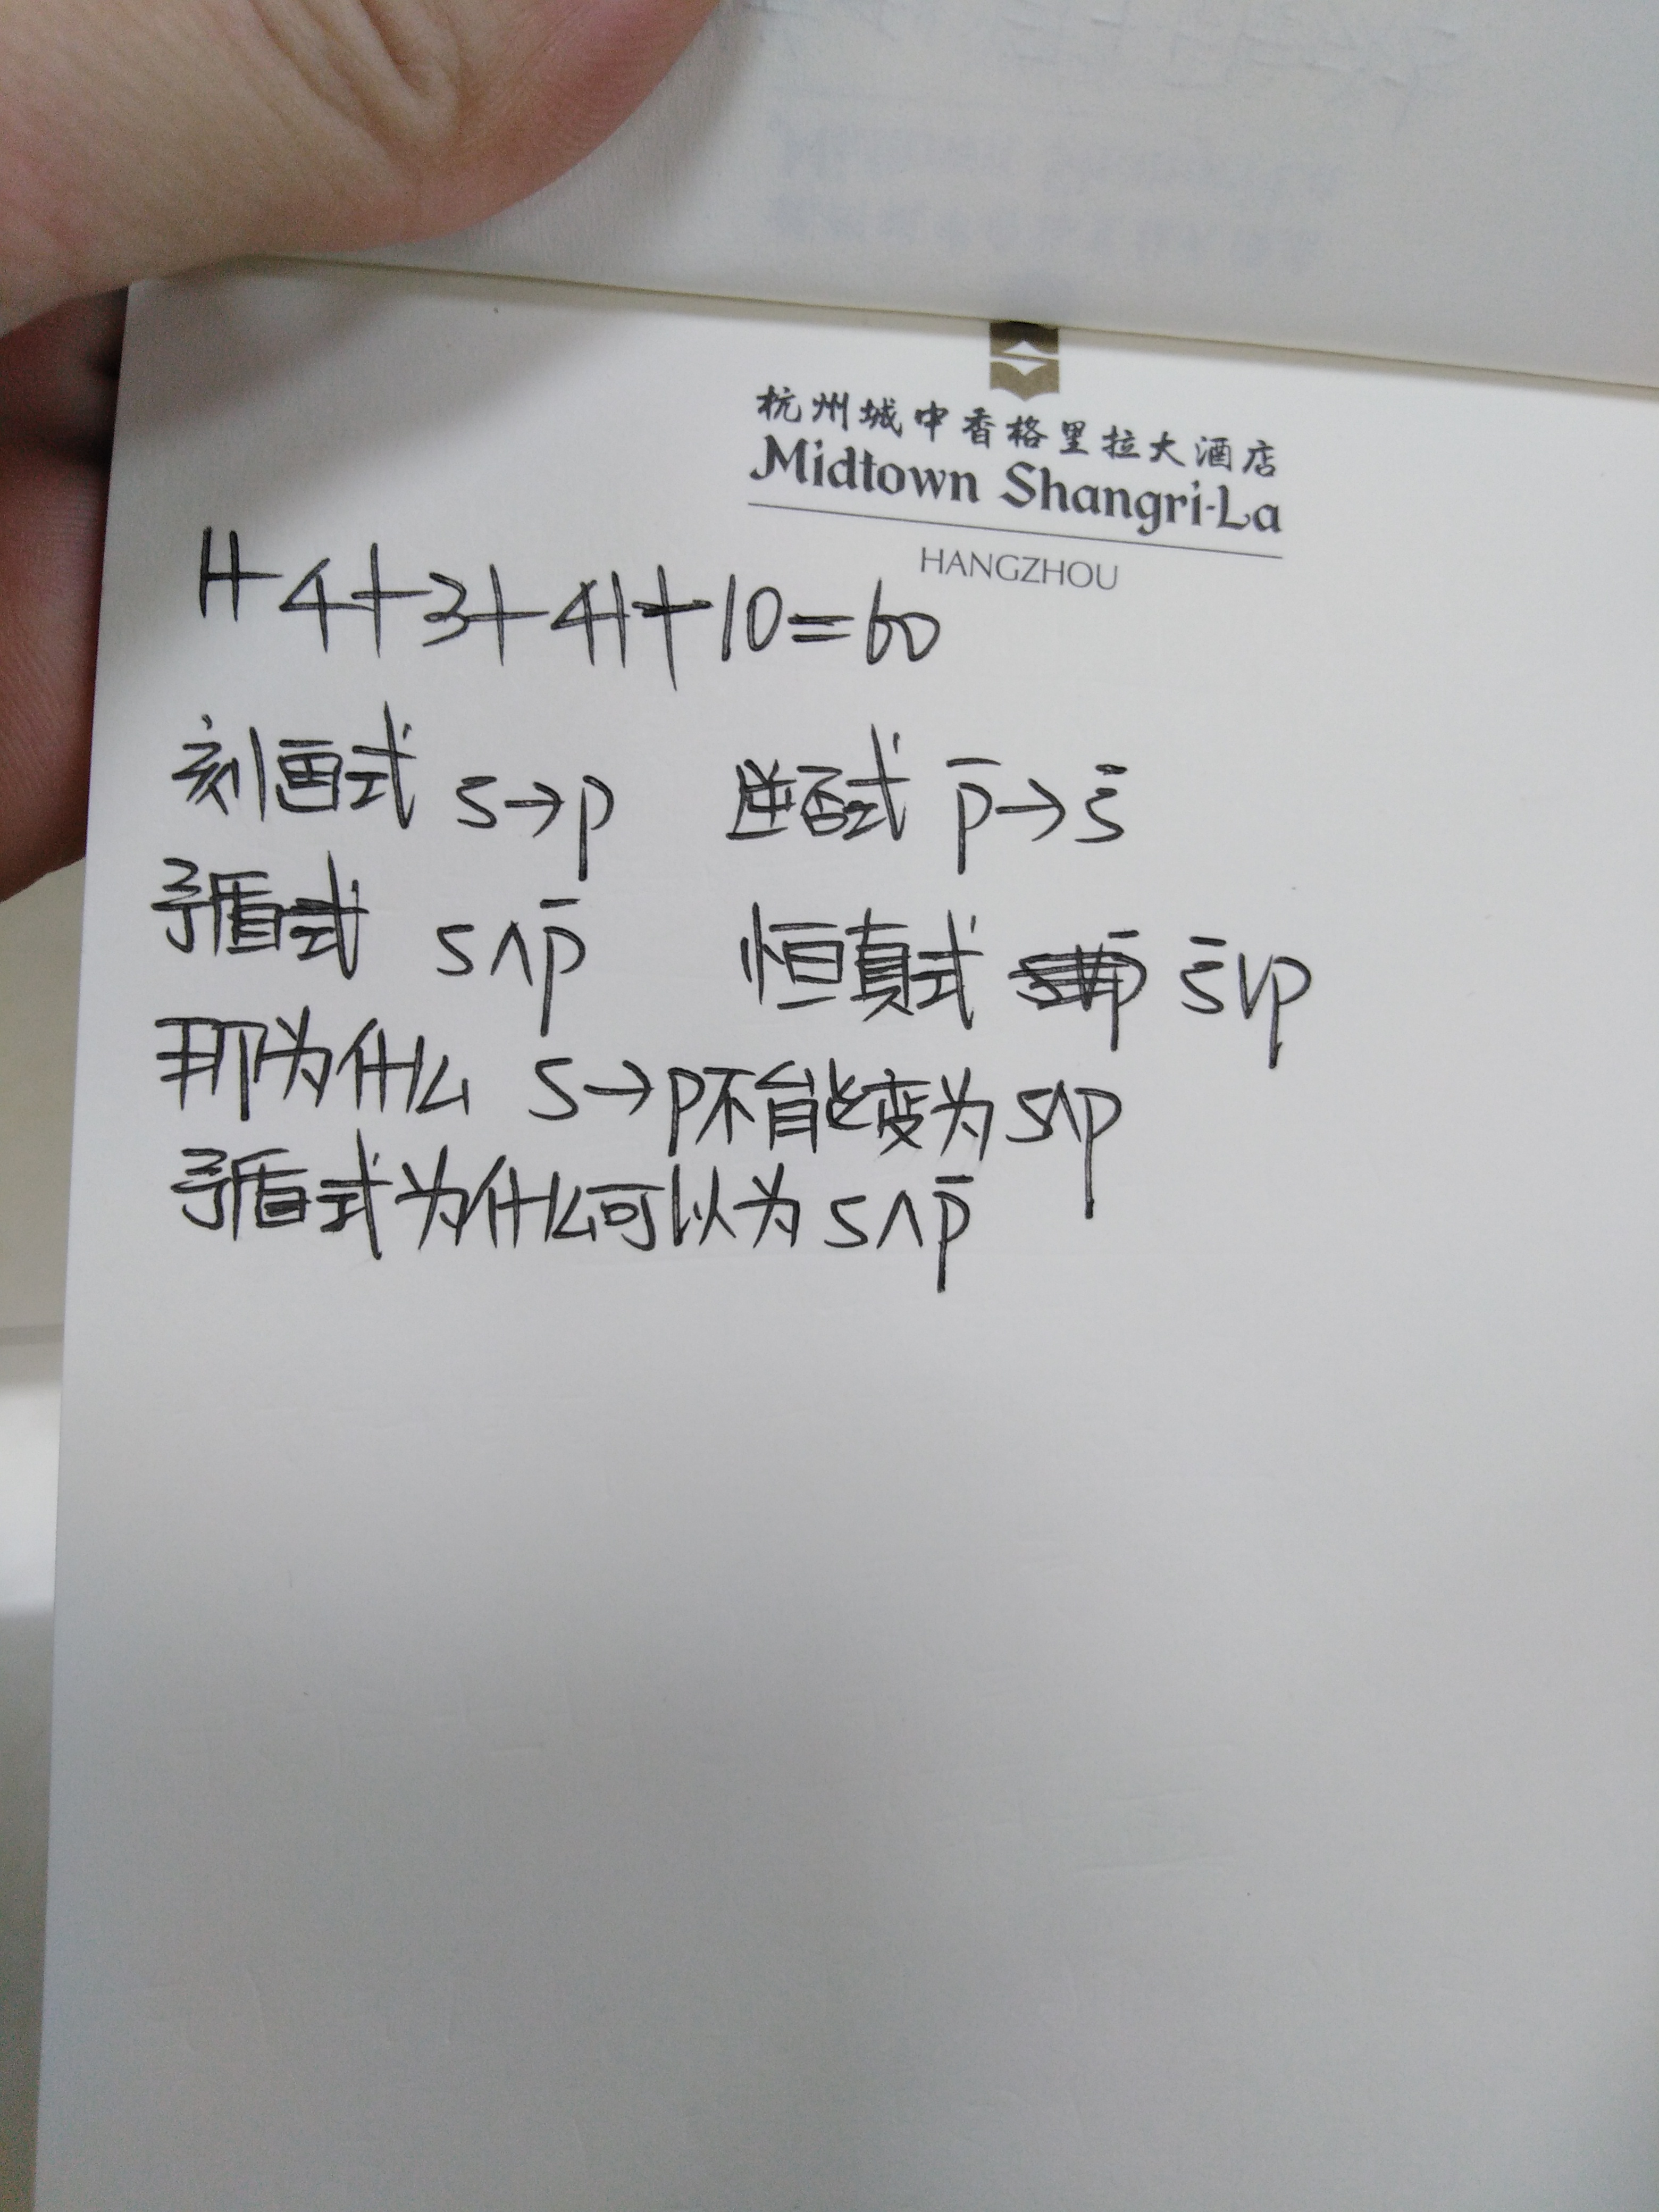 杭州城中香格里拉大酒店
Midtown Shangri-La
HANGZHOU
1+4+3+41+10=60
刻画式 s→p 逆否式 p̄→s̄
矛盾式 s∧p̄ 恒真式 s̄∨p
那为什么 s→p不能变为 s∧p
矛盾式为什么可以为 s∧p̄